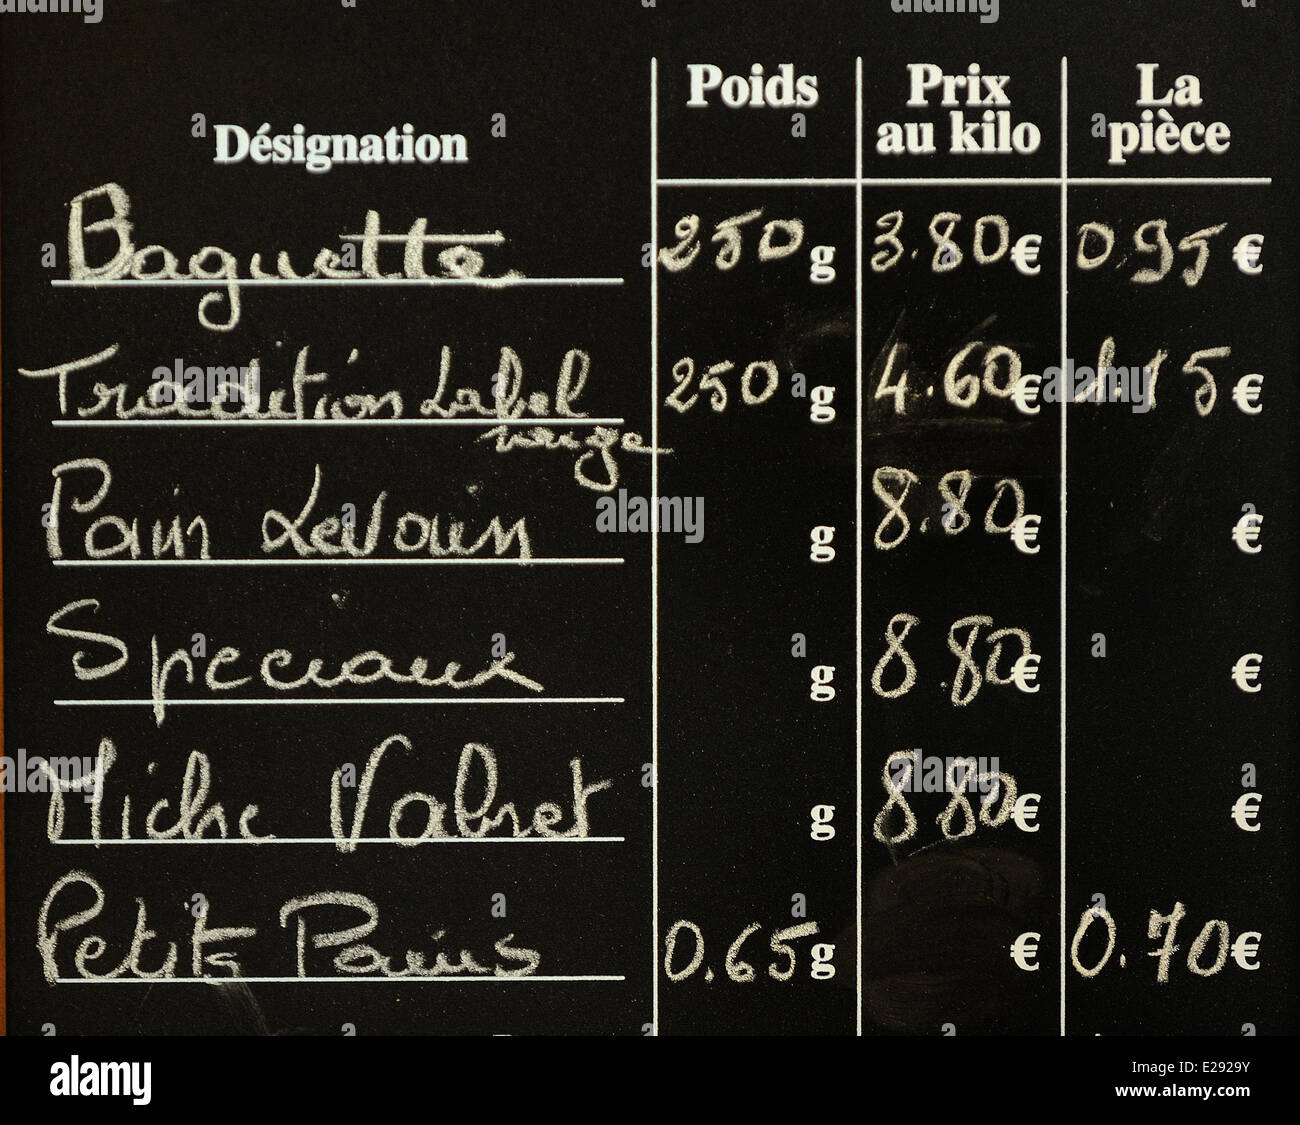 Désignation Poids Prix au kilo La pièce
Baguette 250 g 3.80 € 0.95 €
Tradition Label 250 g 4.60 € 1.15 €
rouge
Pain Levain g 8.80 € €
Speciaux g 8.80 € €
Miche Valnet g 8.80 € €
Petits Pains 0.65 g € 0.70 €
alamy
alamy
Image ID: E2929Y
www.alamy.com